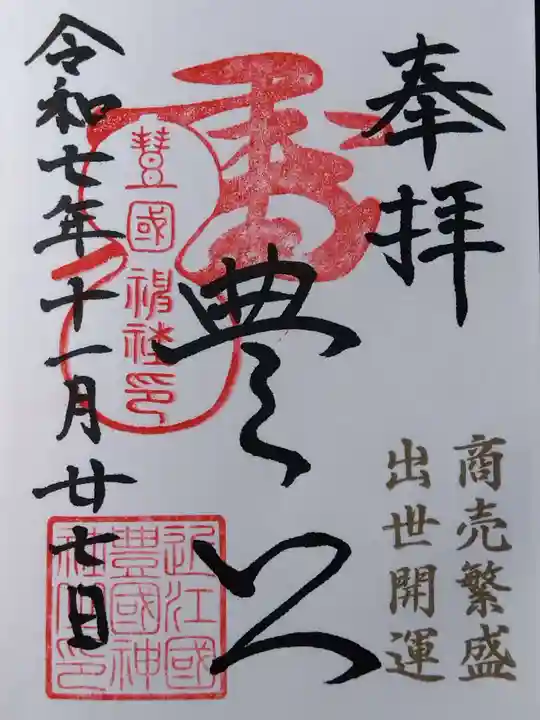 奉拝
商売繁盛
出世開運
豊公
豊國神社印
近江國
豊國神
社印
令和七年十一月廿七日